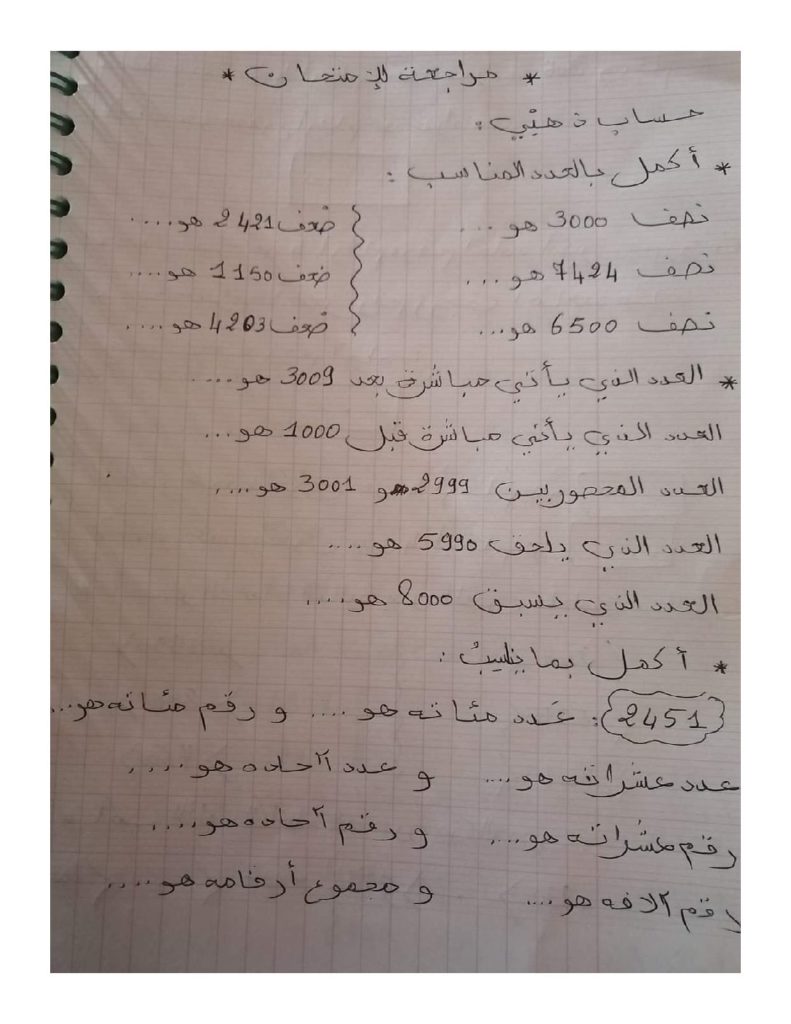 * مراجعة للإمتحان *
حساب ذهني :
* أكمل بالعدد المناسب :
نصف 3000 هو ... ضعف 2421 هو ....
نصف 7424 هو ... ضعف 1150 هو ....
نصف 6500 هو ... ضعف 4203 هو ....
* العدد الذي يأتي مباشرة بعد 3009 هو ....
العدد الذي يأتي مباشرة قبل 1000 هو ...
العدد المحصور بين 2999 و 3001 هو ....
العدد الذي يلحق 5990 هو ....
العدد الذي يسبق 8000 هو ....
* أكمل بما يناسب :
2451 : عدد مئاته هو .... و رقم مئاته هو ...
عدد عشراته هو ... و عدد آحاده هو ....
رقم عشراته هو .... و رقم آحاده هو ....
رقم آلافه هو .... و مجموع أرقامه هو ....